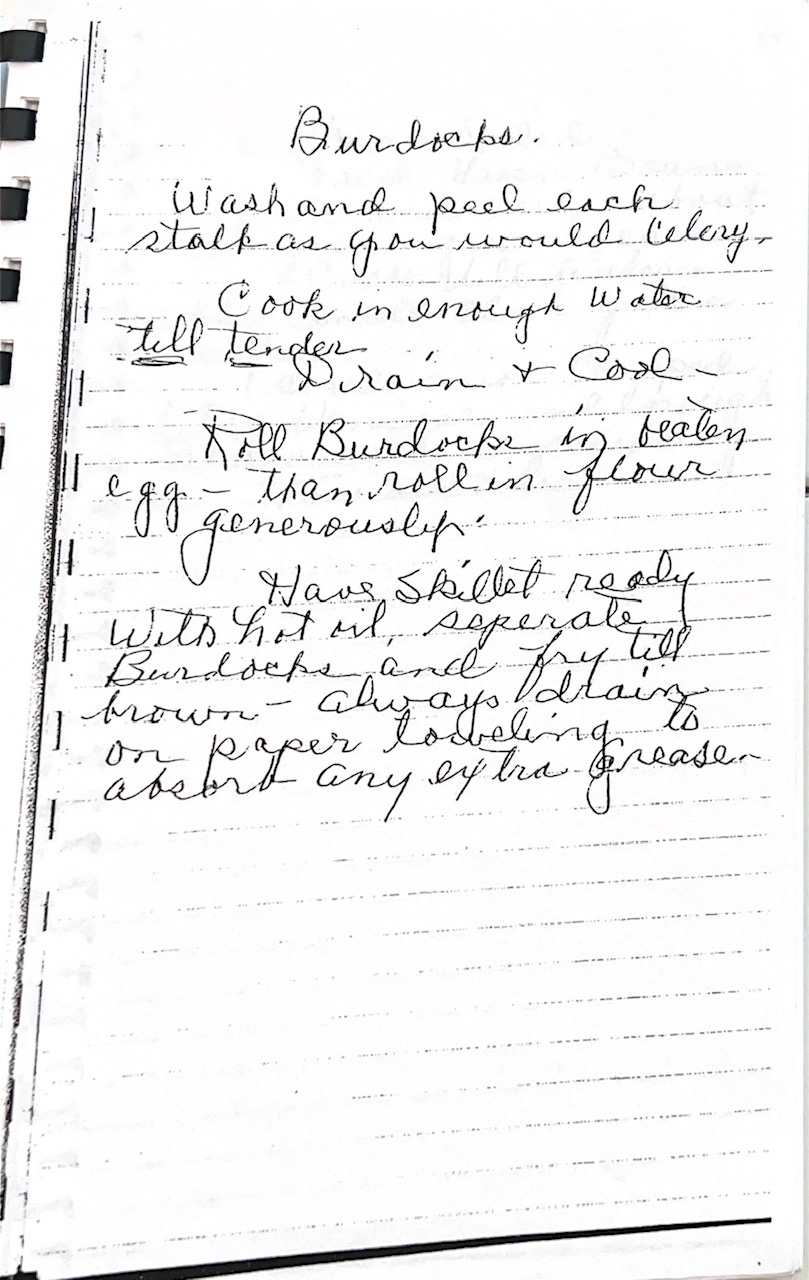 Burdocks.
Wash and peel each
stalk as you would Celery-
Cook in enough Water
till tender
Drain & Cool-
Roll Burdocks in beaten
egg - than roll in flour
generously.
Have Skillet ready
With hot oil, seperate
Burdocks and fry till
brown - always drain
on paper toweling to
absorb any extra Grease-